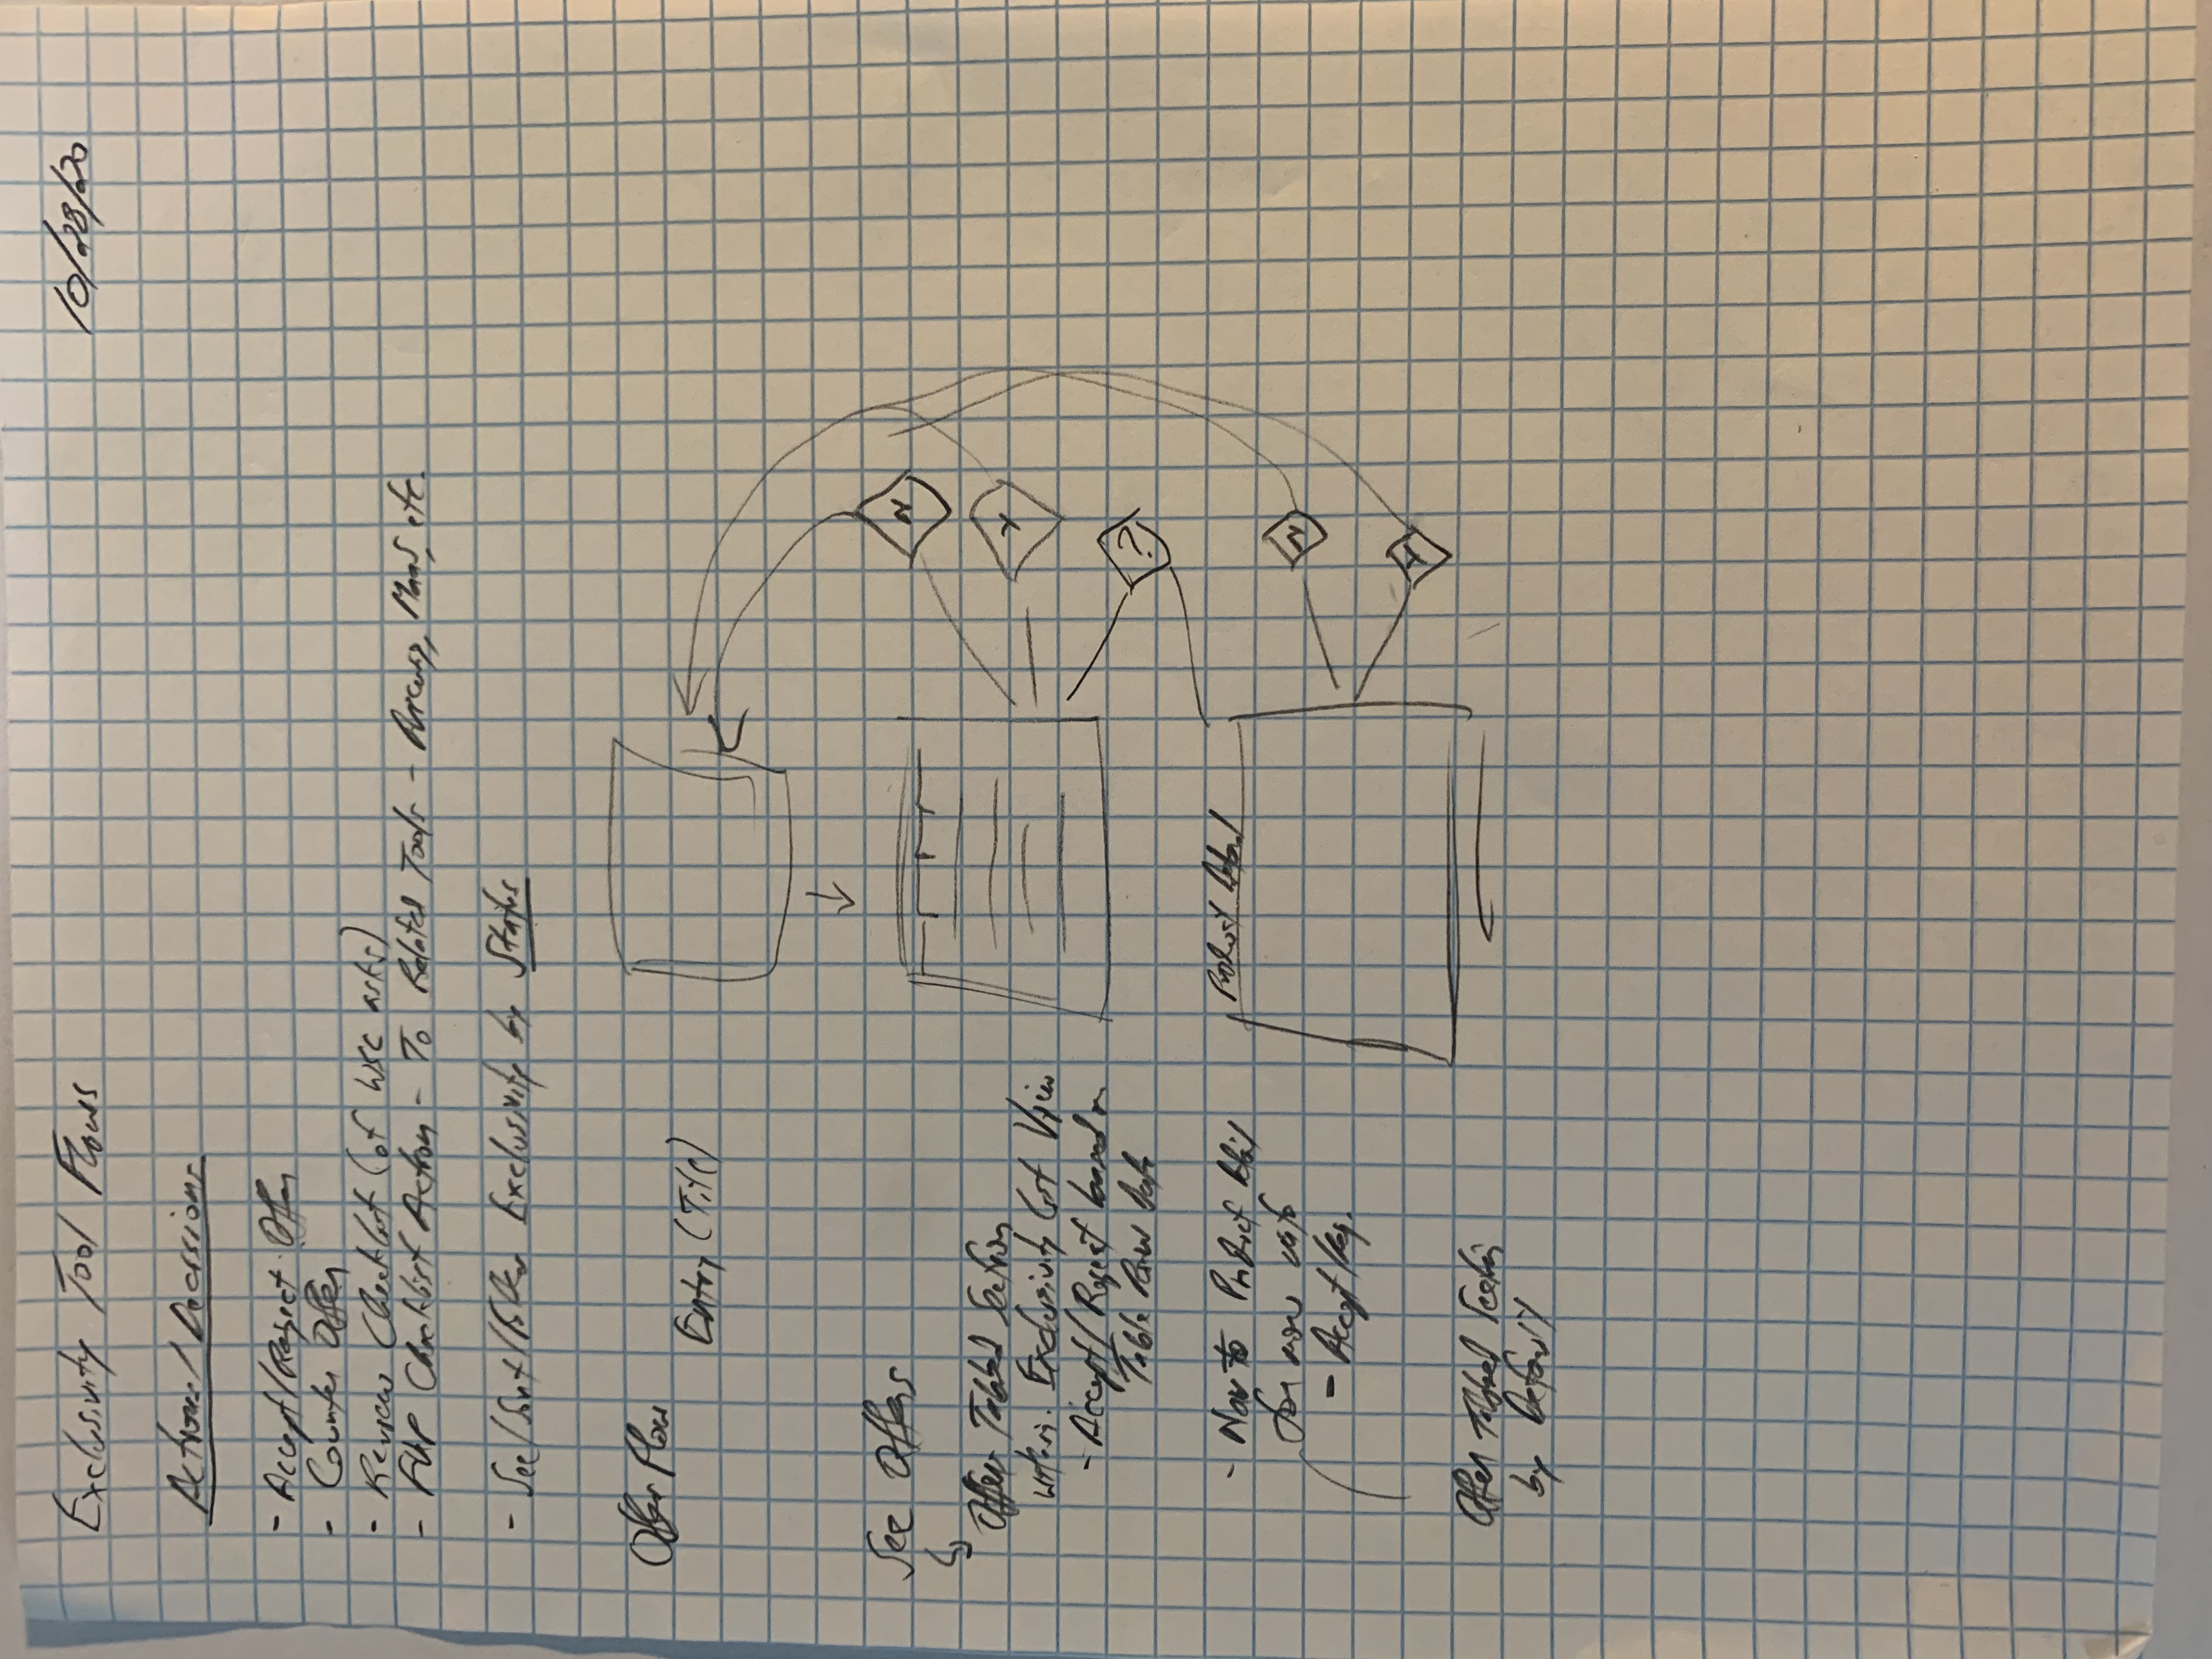 Exclusivity Tool Flows
10/28/20
Actions/Decisions
- Accept/Reject Offer
- Counter Offer
- Review Checklist (of WSC asks)
- Checklist Action - To Related Tools - Pricing, Maps, etc.
- See/Sort/Filter Exclusivity by Status
Offer Flow
Entry (Title)
See Offers
Offer Tabbed Section
within Exclusivity List View
- Accept/Reject based on
Table Row Data
- Nav to Product Detail
for more info
- Accept/Rej.
Offer Tabbed Section
by Default
N
Y
?
Product Detail
N
Y